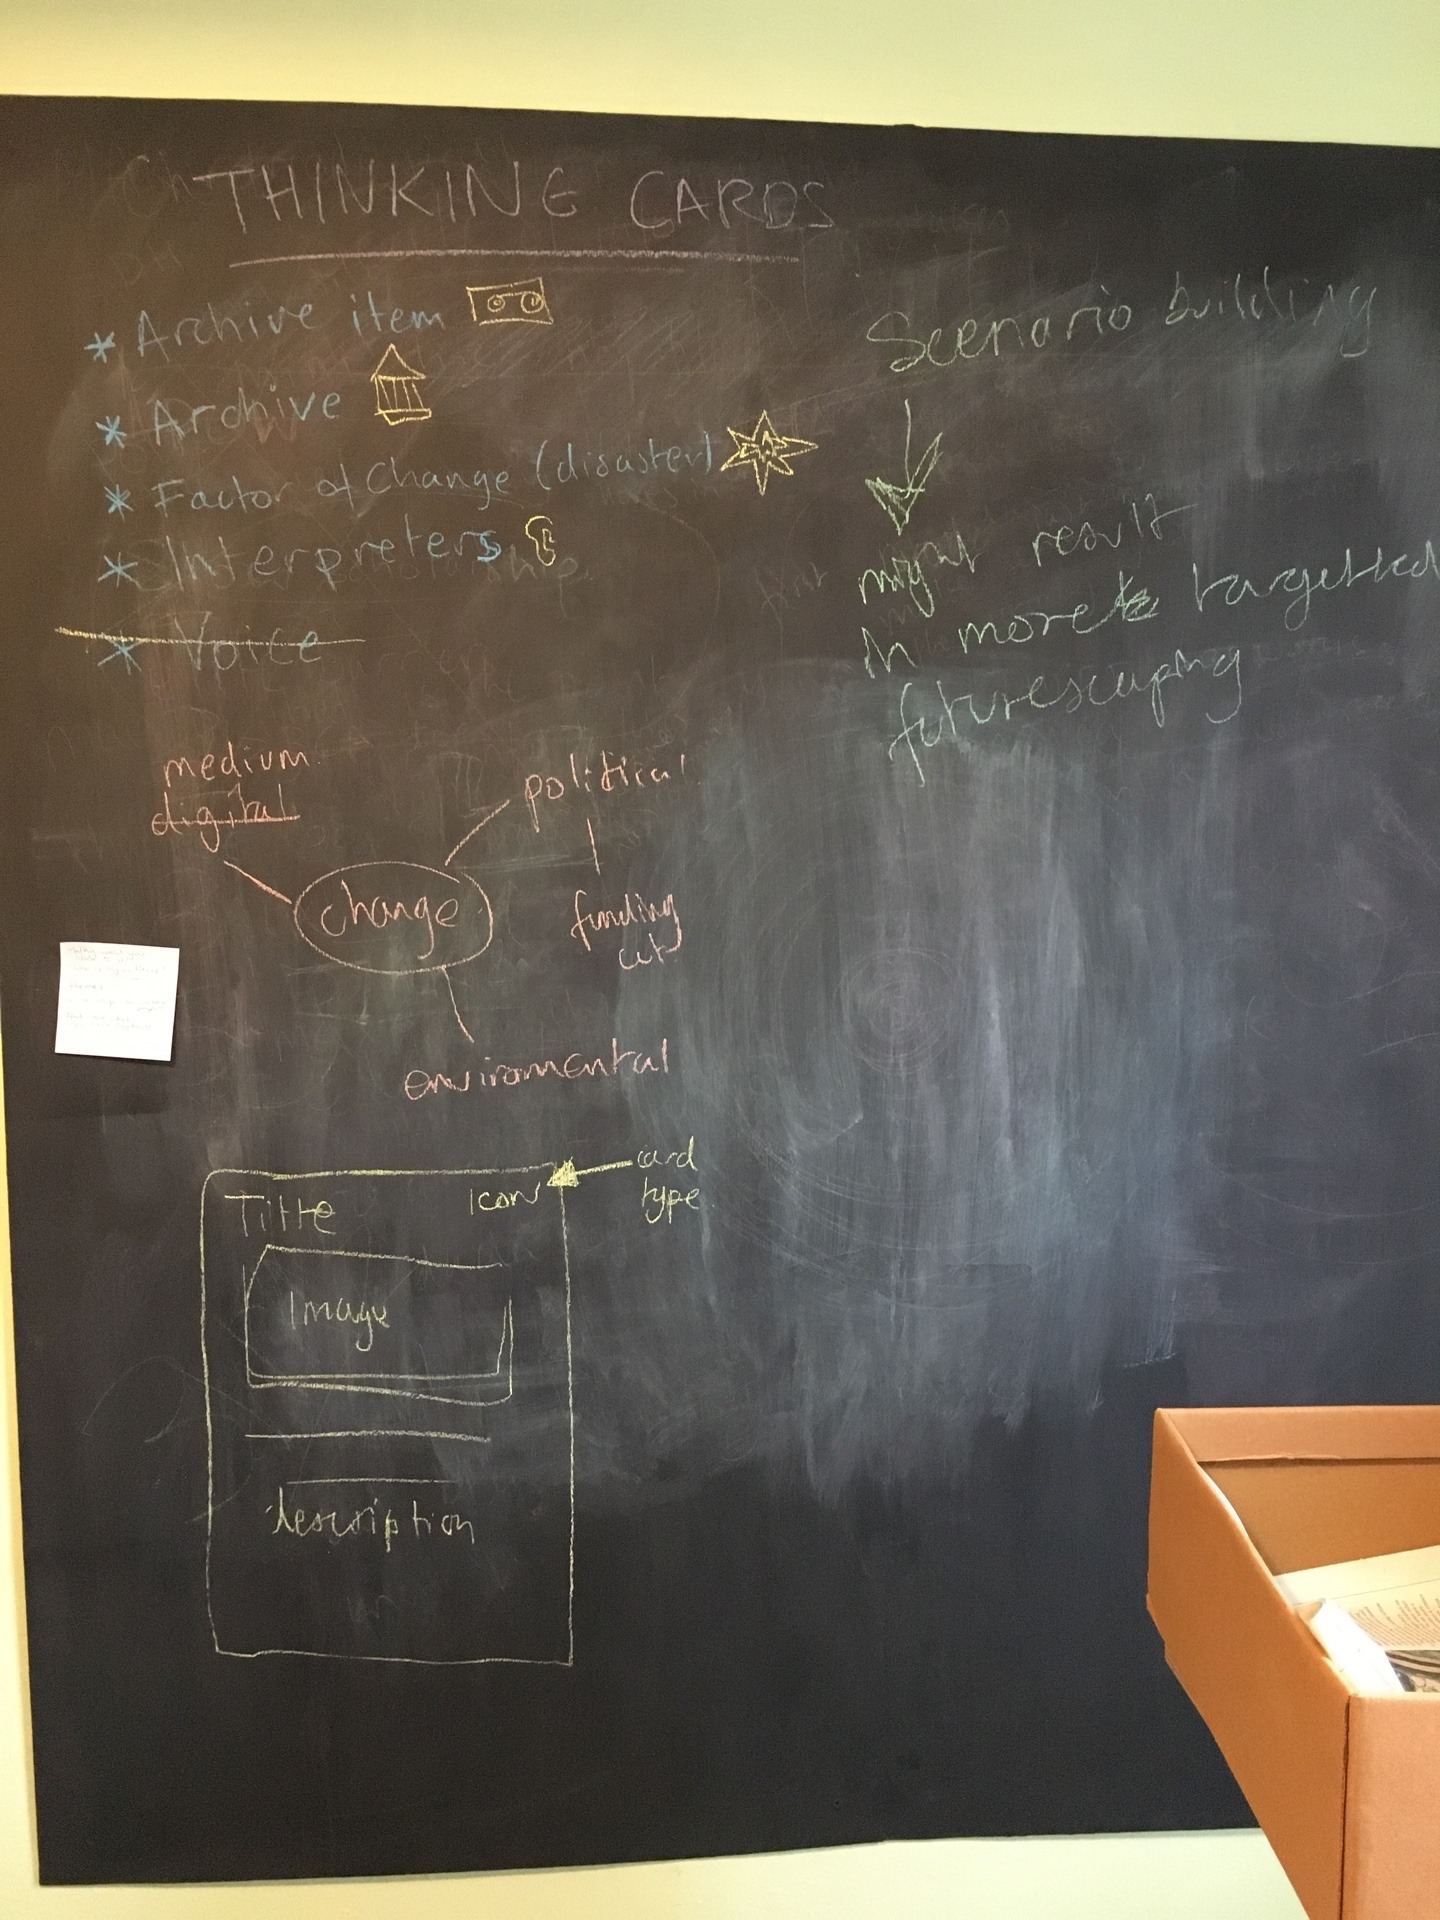 THINKING CARDS
* Archive item
* Archive
* Factor of Change (disaster)
* Interpreters
* Voice
Scenario building
might result
in more targetted
futurescaping
medium
digital
political
change
funding
cut
enviromental
card
type
Title
Icon
Image
description